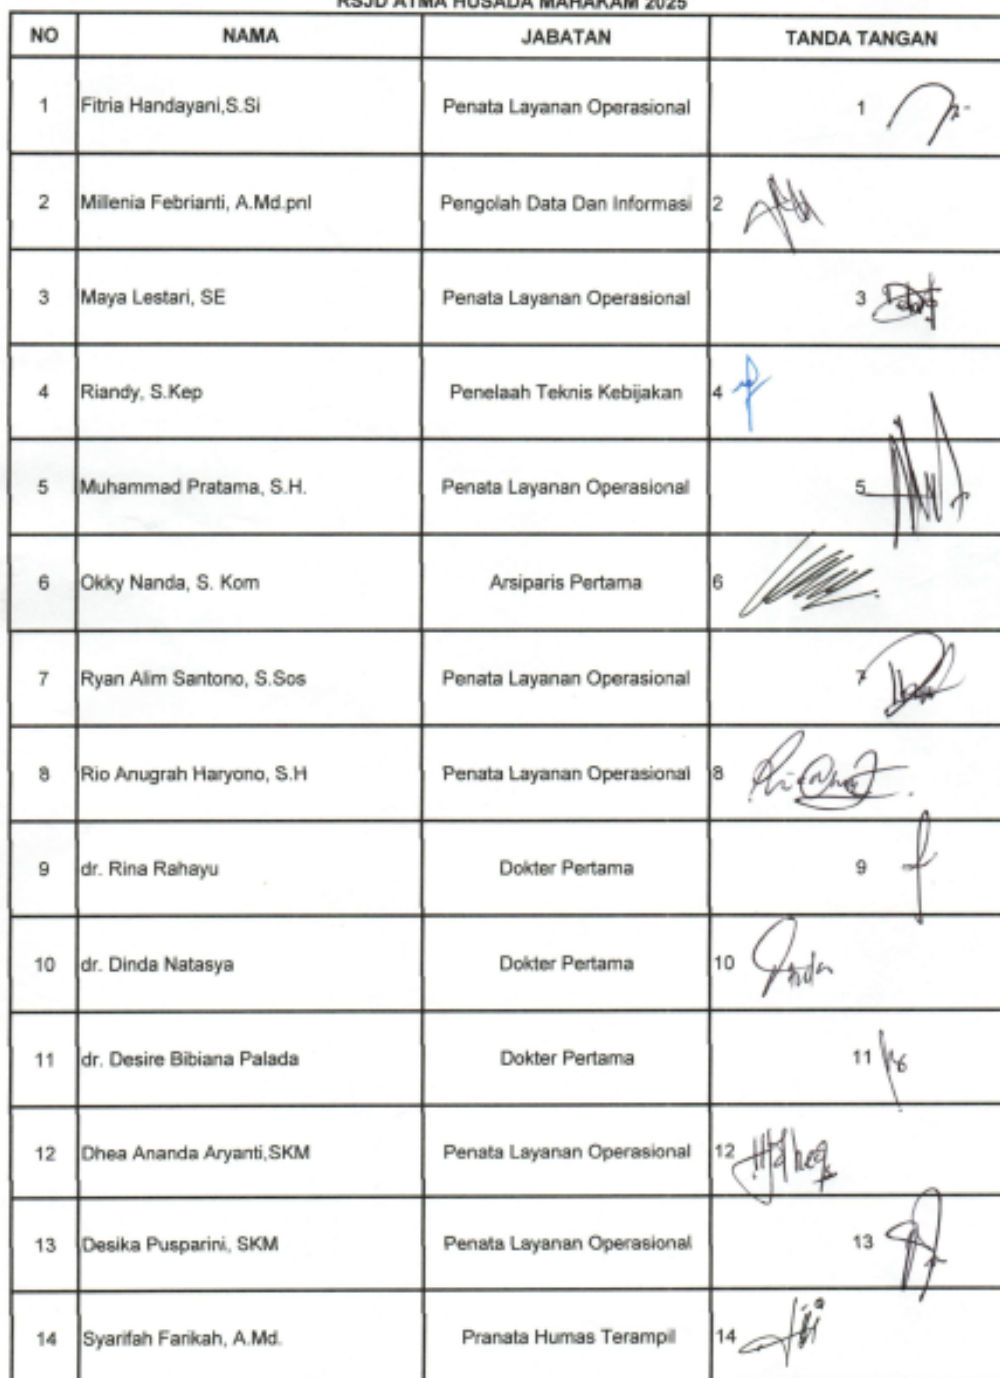 RSJD ATMA HUSADA MAHAKAM 2025
NO NAMA JABATAN TANDA TANGAN
1 Fitria Handayani,S.Si Penata Layanan Operasional 1
2 Millenia Febrianti, A.Md.pnl Pengolah Data Dan Informasi 2
3 Maya Lestari, SE Penata Layanan Operasional 3
4 Riandy, S.Kep Penelaah Teknis Kebijakan 4
5 Muhammad Pratama, S.H. Penata Layanan Operasional 5
6 Okky Nanda, S. Kom Arsiparis Pertama 6
7 Ryan Alim Santono, S.Sos Penata Layanan Operasional 7
8 Rio Anugrah Haryono, S.H Penata Layanan Operasional 8
9 dr. Rina Rahayu Dokter Pertama 9
10 dr. Dinda Natasya Dokter Pertama 10
11 dr. Desire Bibiana Palada Dokter Pertama 11
12 Dhea Ananda Aryanti,SKM Penata Layanan Operasional 12
13 Desika Pusparini, SKM Penata Layanan Operasional 13
14 Syarifah Farikah, A.Md. Pranata Humas Terampil 14